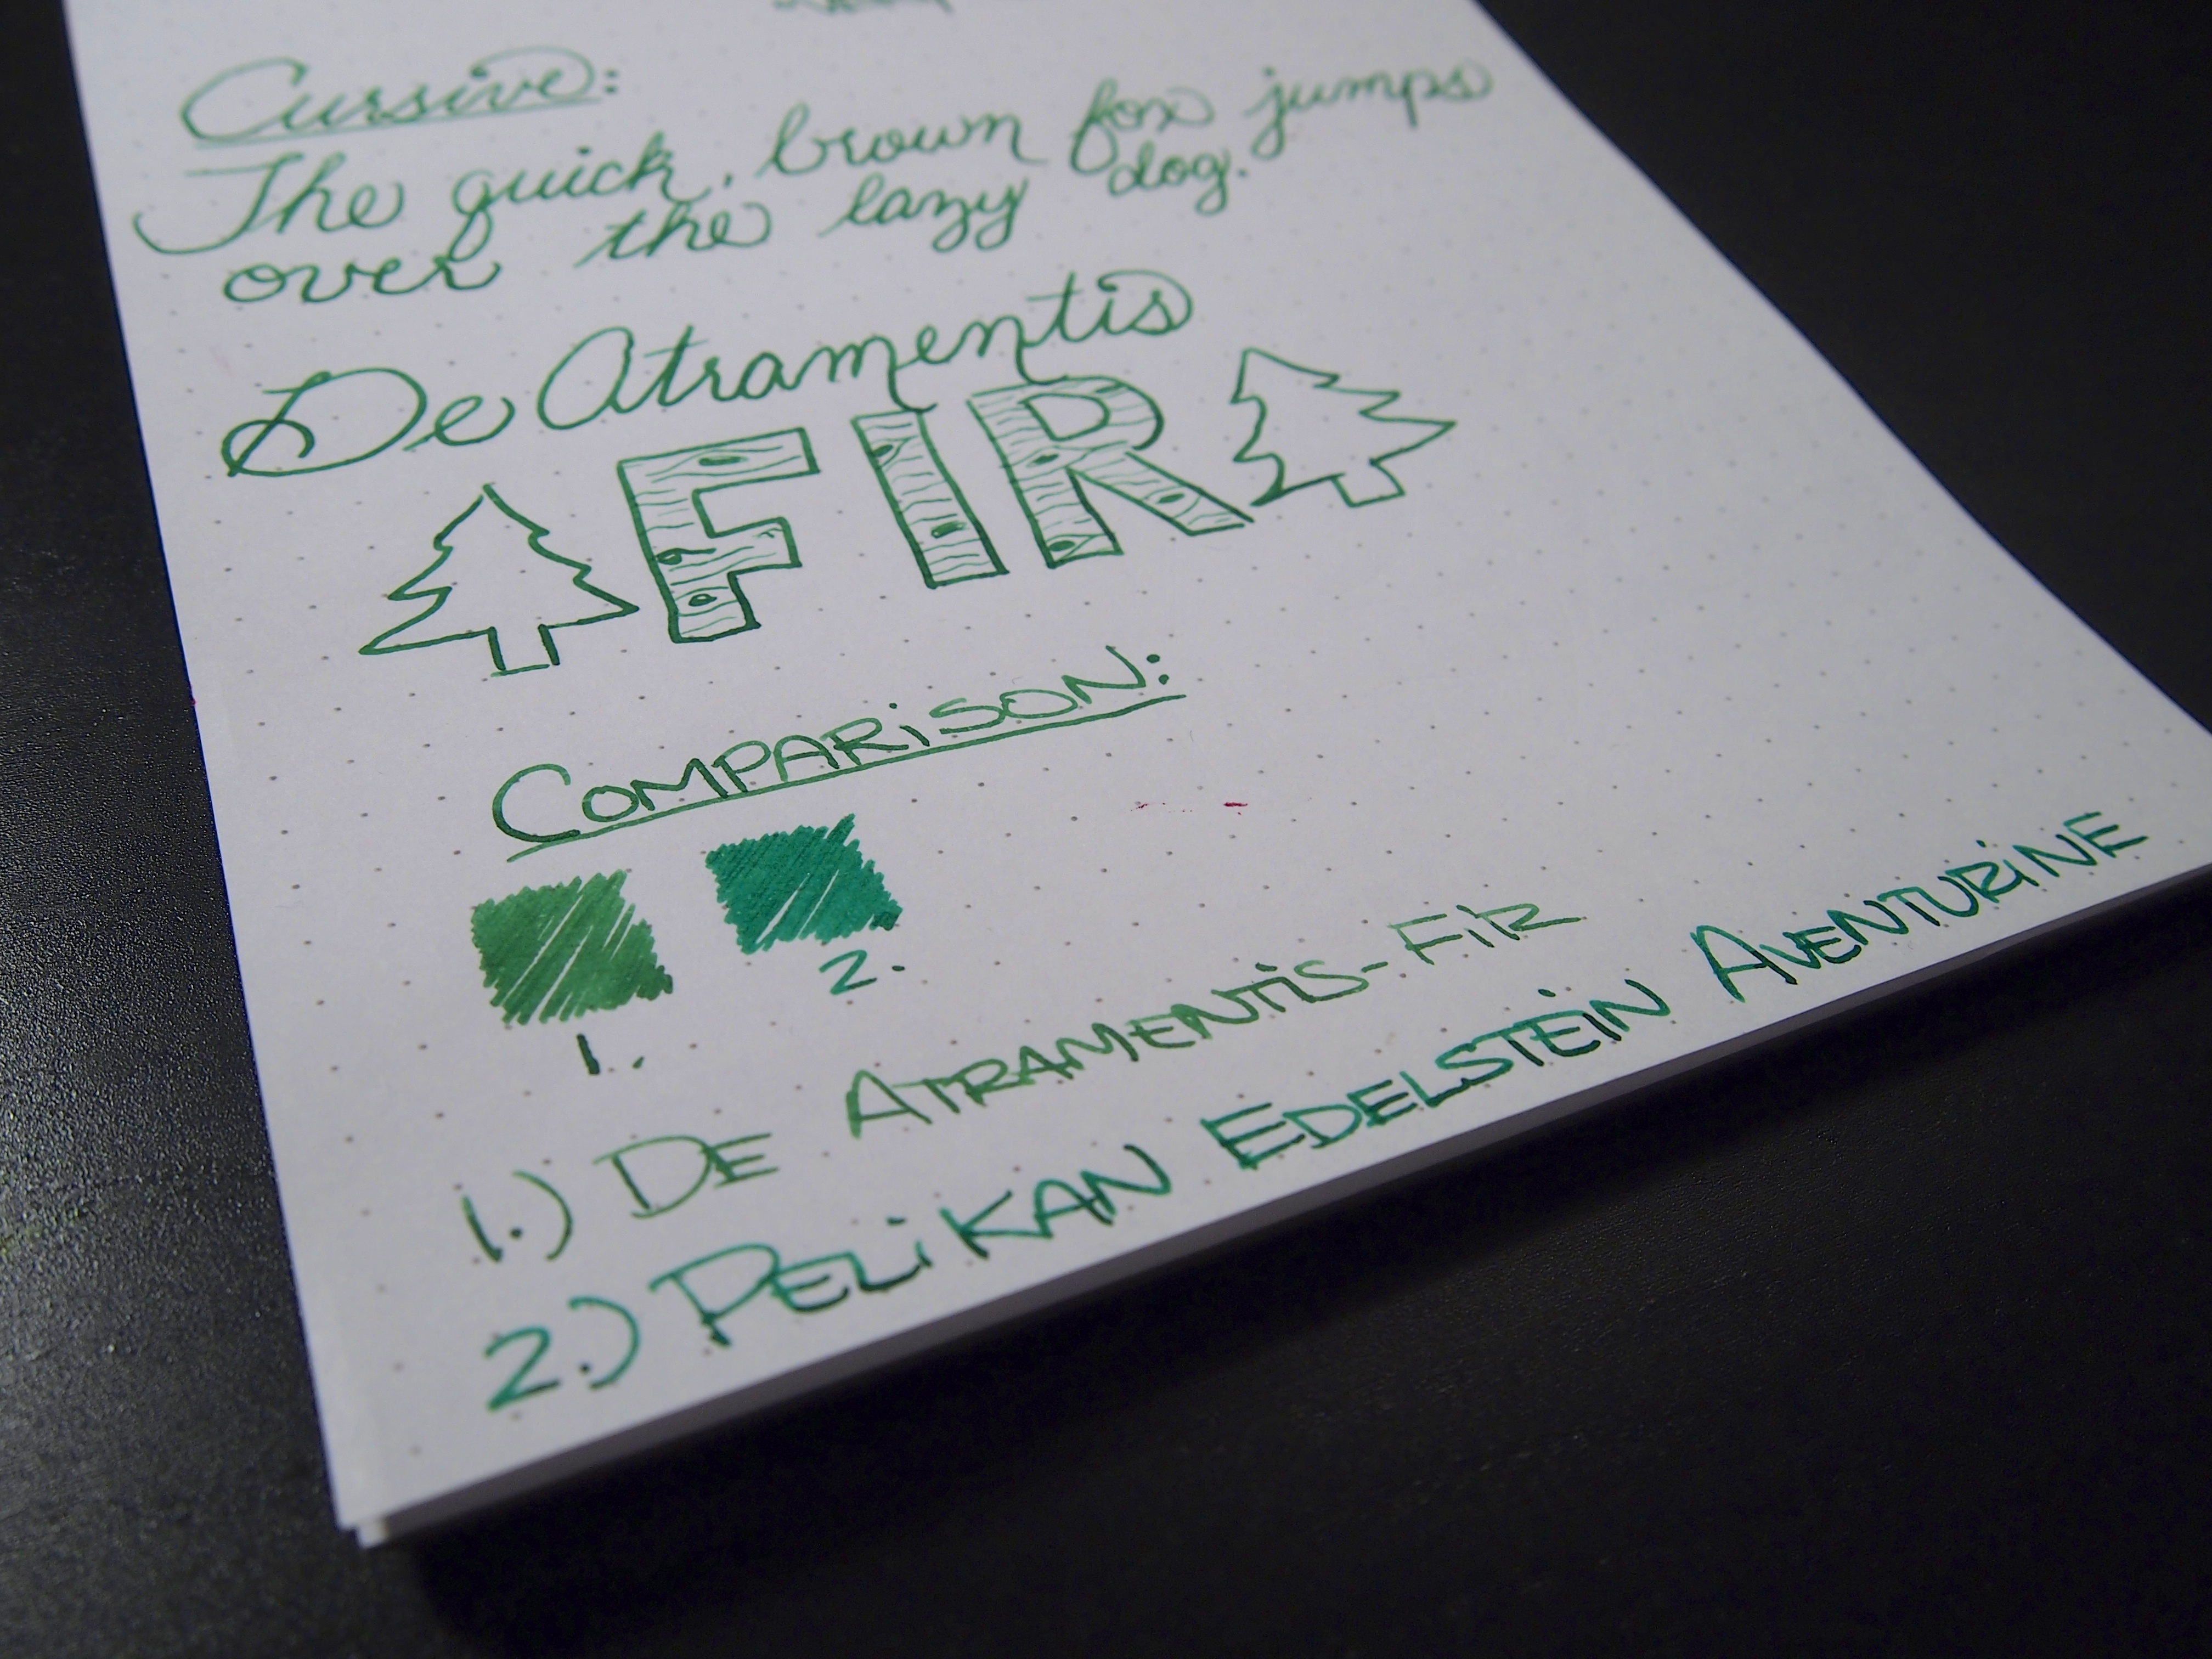 Cursive:
The quick, brown fox jumps
over the lazy dog.
De Atramentis
FIR
COMPARiSON:
1. 2.
1.) DE ATRAMENTiS-FiR
2.) PELiKAN EDELSTEiN AVENTURiNE